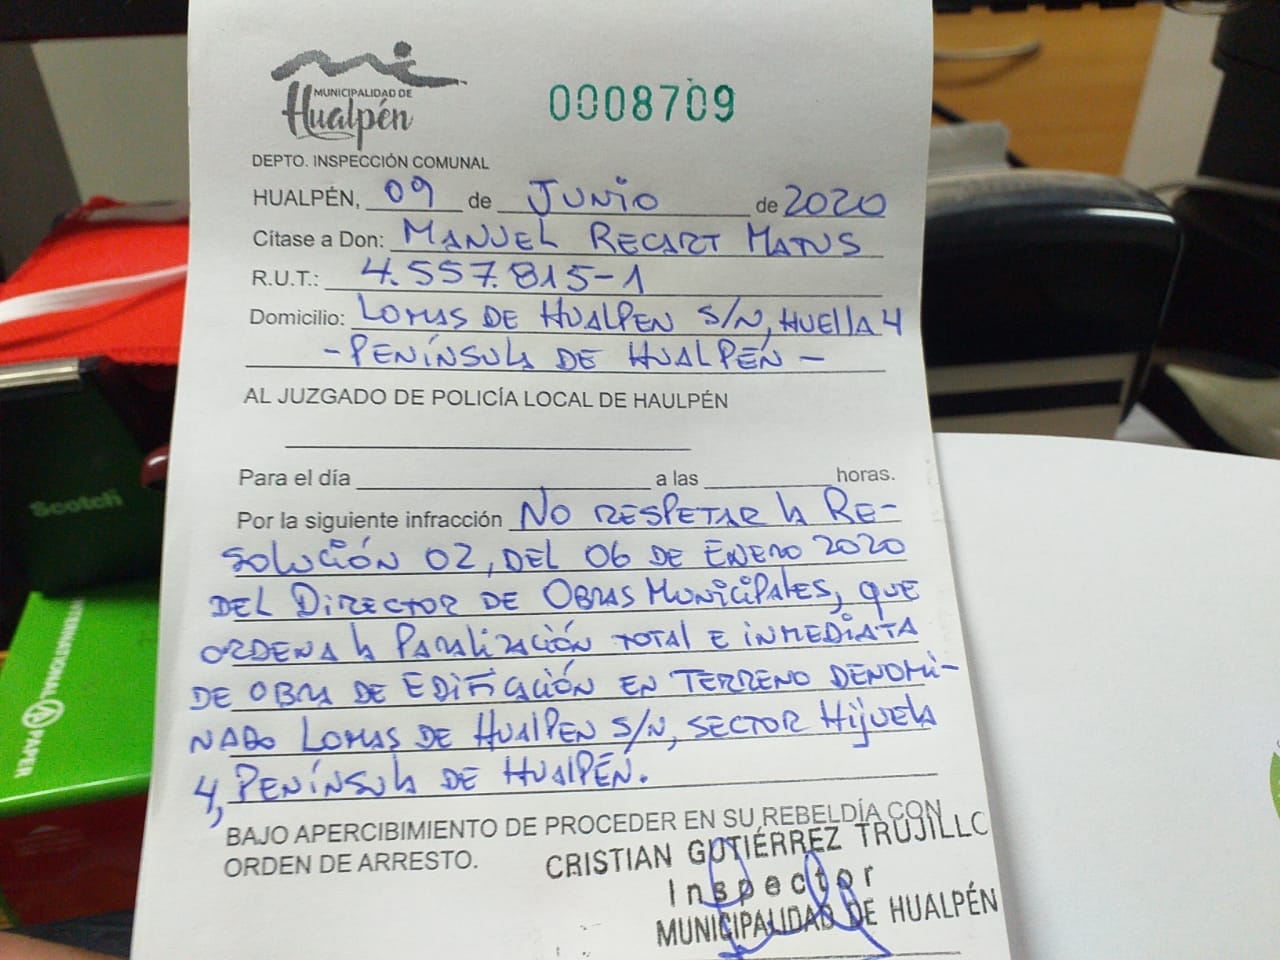 MUNICIPALIDAD DE
Hualpén
0008709
DEPTO. INSPECCIÓN COMUNAL
HUALPÉN, 09 de JUNIO de 2020
Cítase a Don: MANUEL RECART MATUS
R.U.T.: 4.557.815-1
Domicilio: LOMAS DE HUALPEN S/N, HUELLA 4
- PENÍNSULA DE HUALPÉN -
AL JUZGADO DE POLICÍA LOCAL DE HAULPÉN
Para el día a las horas.
Por la siguiente infracción NO RESPETAR LA RE-
SOLUCIÓN 02, DEL 06 DE ENERO 2020
DEL DIRECTOR DE OBRAS MUNICIPALES, QUE
ORDENA LA PARALIZACIÓN TOTAL E INMEDIATA
DE OBRA DE EDIFICACIÓN EN TERRENO DENOMI-
NADO LOMAS DE HUALPEN S/N, SECTOR HIJUELA
4, PENÍNSULA DE HUALPÉN.
BAJO APERCIBIMIENTO DE PROCEDER EN SU REBELDÍA CON
ORDEN DE ARRESTO.
CRISTIAN GUTIÉRREZ TRUJILLO
Inspector
MUNICIPALIDAD DE HUALPÉN
Scotch
INTERNATIONAL PAPER